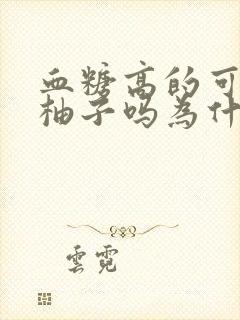 血糖高的可
柚子吗为什
雲霓